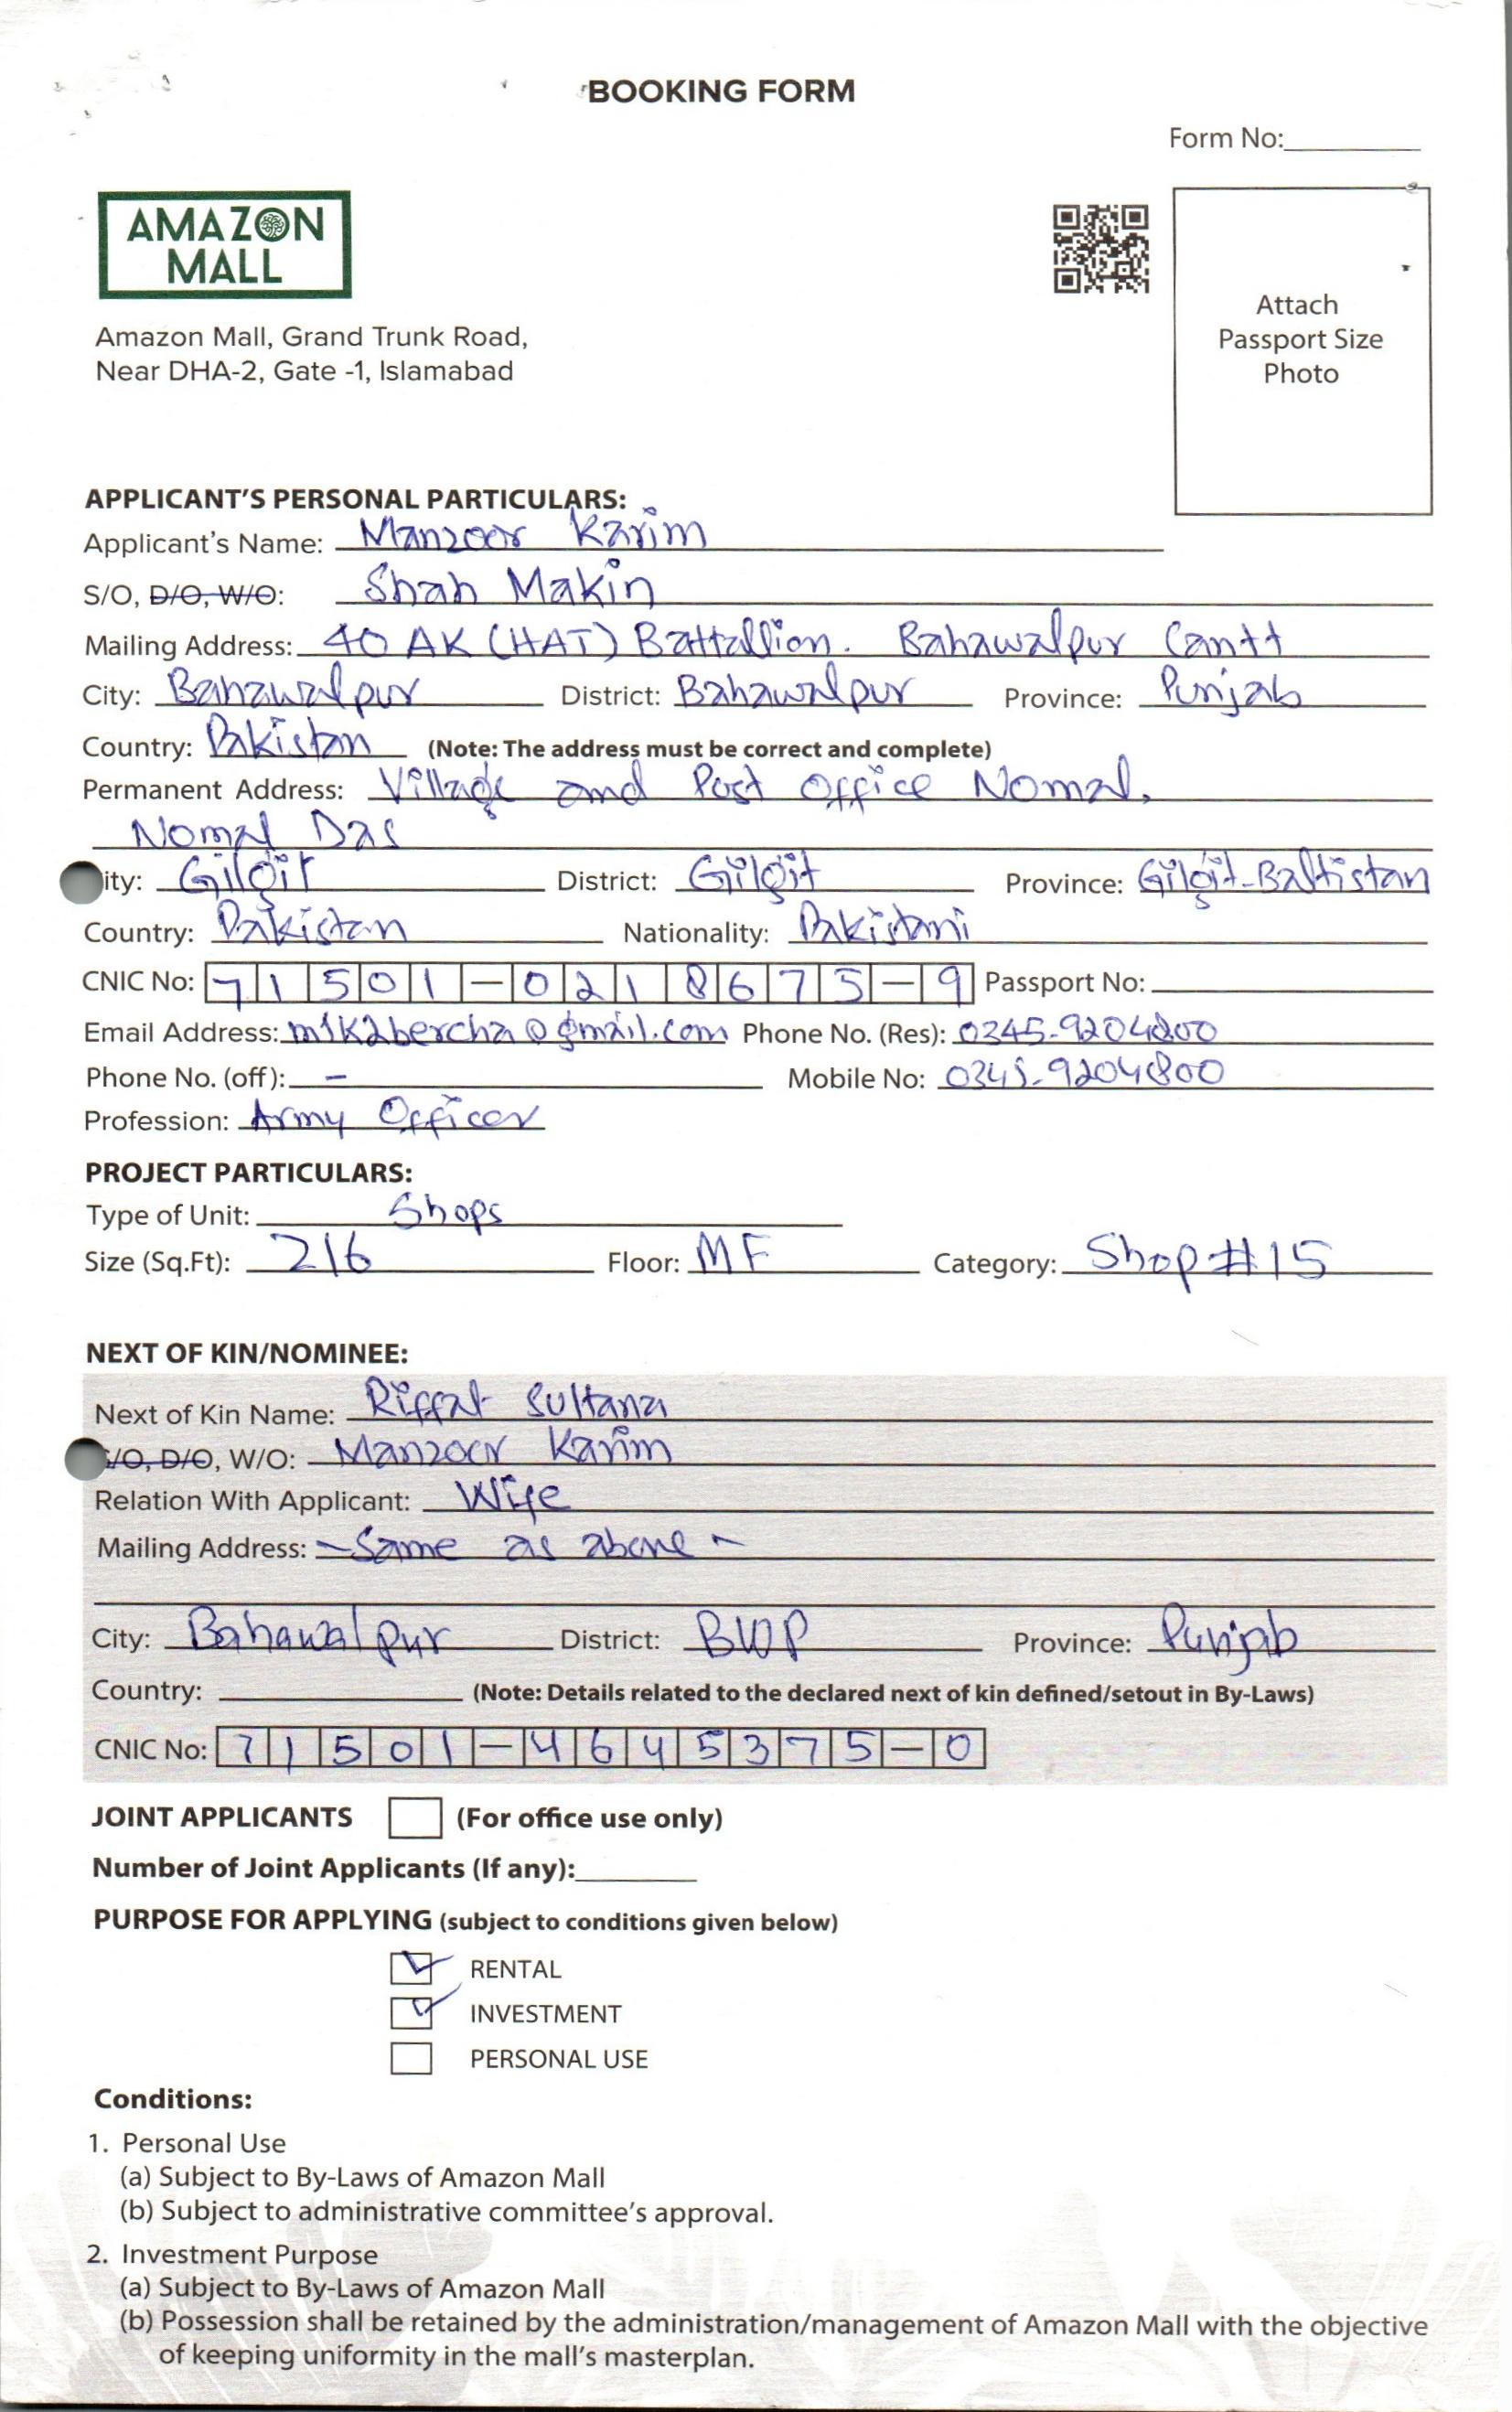 BOOKING FORM
Form No:
AMAZON
MALL
Attach
Passport Size
Photo
Amazon Mall, Grand Trunk Road,
Near DHA-2, Gate -1, Islamabad
APPLICANT'S PERSONAL PARTICULARS:
Applicant's Name: Manzoor Karim
S/O, D/O, W/O: Shah Makin
Mailing Address: 40 AK (HAT) Battallion. Bahawalpur Cantt
City: Bahawalpur District: Bahawalpur Province: Punjab
Country: Pakistan (Note: The address must be correct and complete)
Permanent Address: Village and Post Office Nomal,
Nomal Das
ity: Gilgit District: Gilgit Province: Gilgit-Baltistan
Country: Pakistan Nationality: Pakistani
CNIC No: 71501-0218675-9 Passport No:
Email Address: m1k2bercha@gmail.com Phone No. (Res): 0345-9204800
Phone No. (off): - Mobile No: 0345-9204800
Profession: Army Officer
PROJECT PARTICULARS:
Type of Unit: Shops
Size (Sq.Ft): 216 Floor: MF Category: Shop #15
NEXT OF KIN/NOMINEE:
Next of Kin Name: Riffat Sultana
/O, D/O, W/O: Manzoor Karim
Relation With Applicant: Wife
Mailing Address: -Same as above-
City: Bahawalpur District: BWP Province: Punjab
Country: (Note: Details related to the declared next of kin defined/setout in By-Laws)
CNIC No: 71501-4645375-0
JOINT APPLICANTS (For office use only)
Number of Joint Applicants (If any):
PURPOSE FOR APPLYING (subject to conditions given below)
RENTAL
INVESTMENT
PERSONAL USE
Conditions:
1. Personal Use
(a) Subject to By-Laws of Amazon Mall
(b) Subject to administrative committee's approval.
2. Investment Purpose
(a) Subject to By-Laws of Amazon Mall
(b) Possession shall be retained by the administration/management of Amazon Mall with the objective
of keeping uniformity in the mall's masterplan.